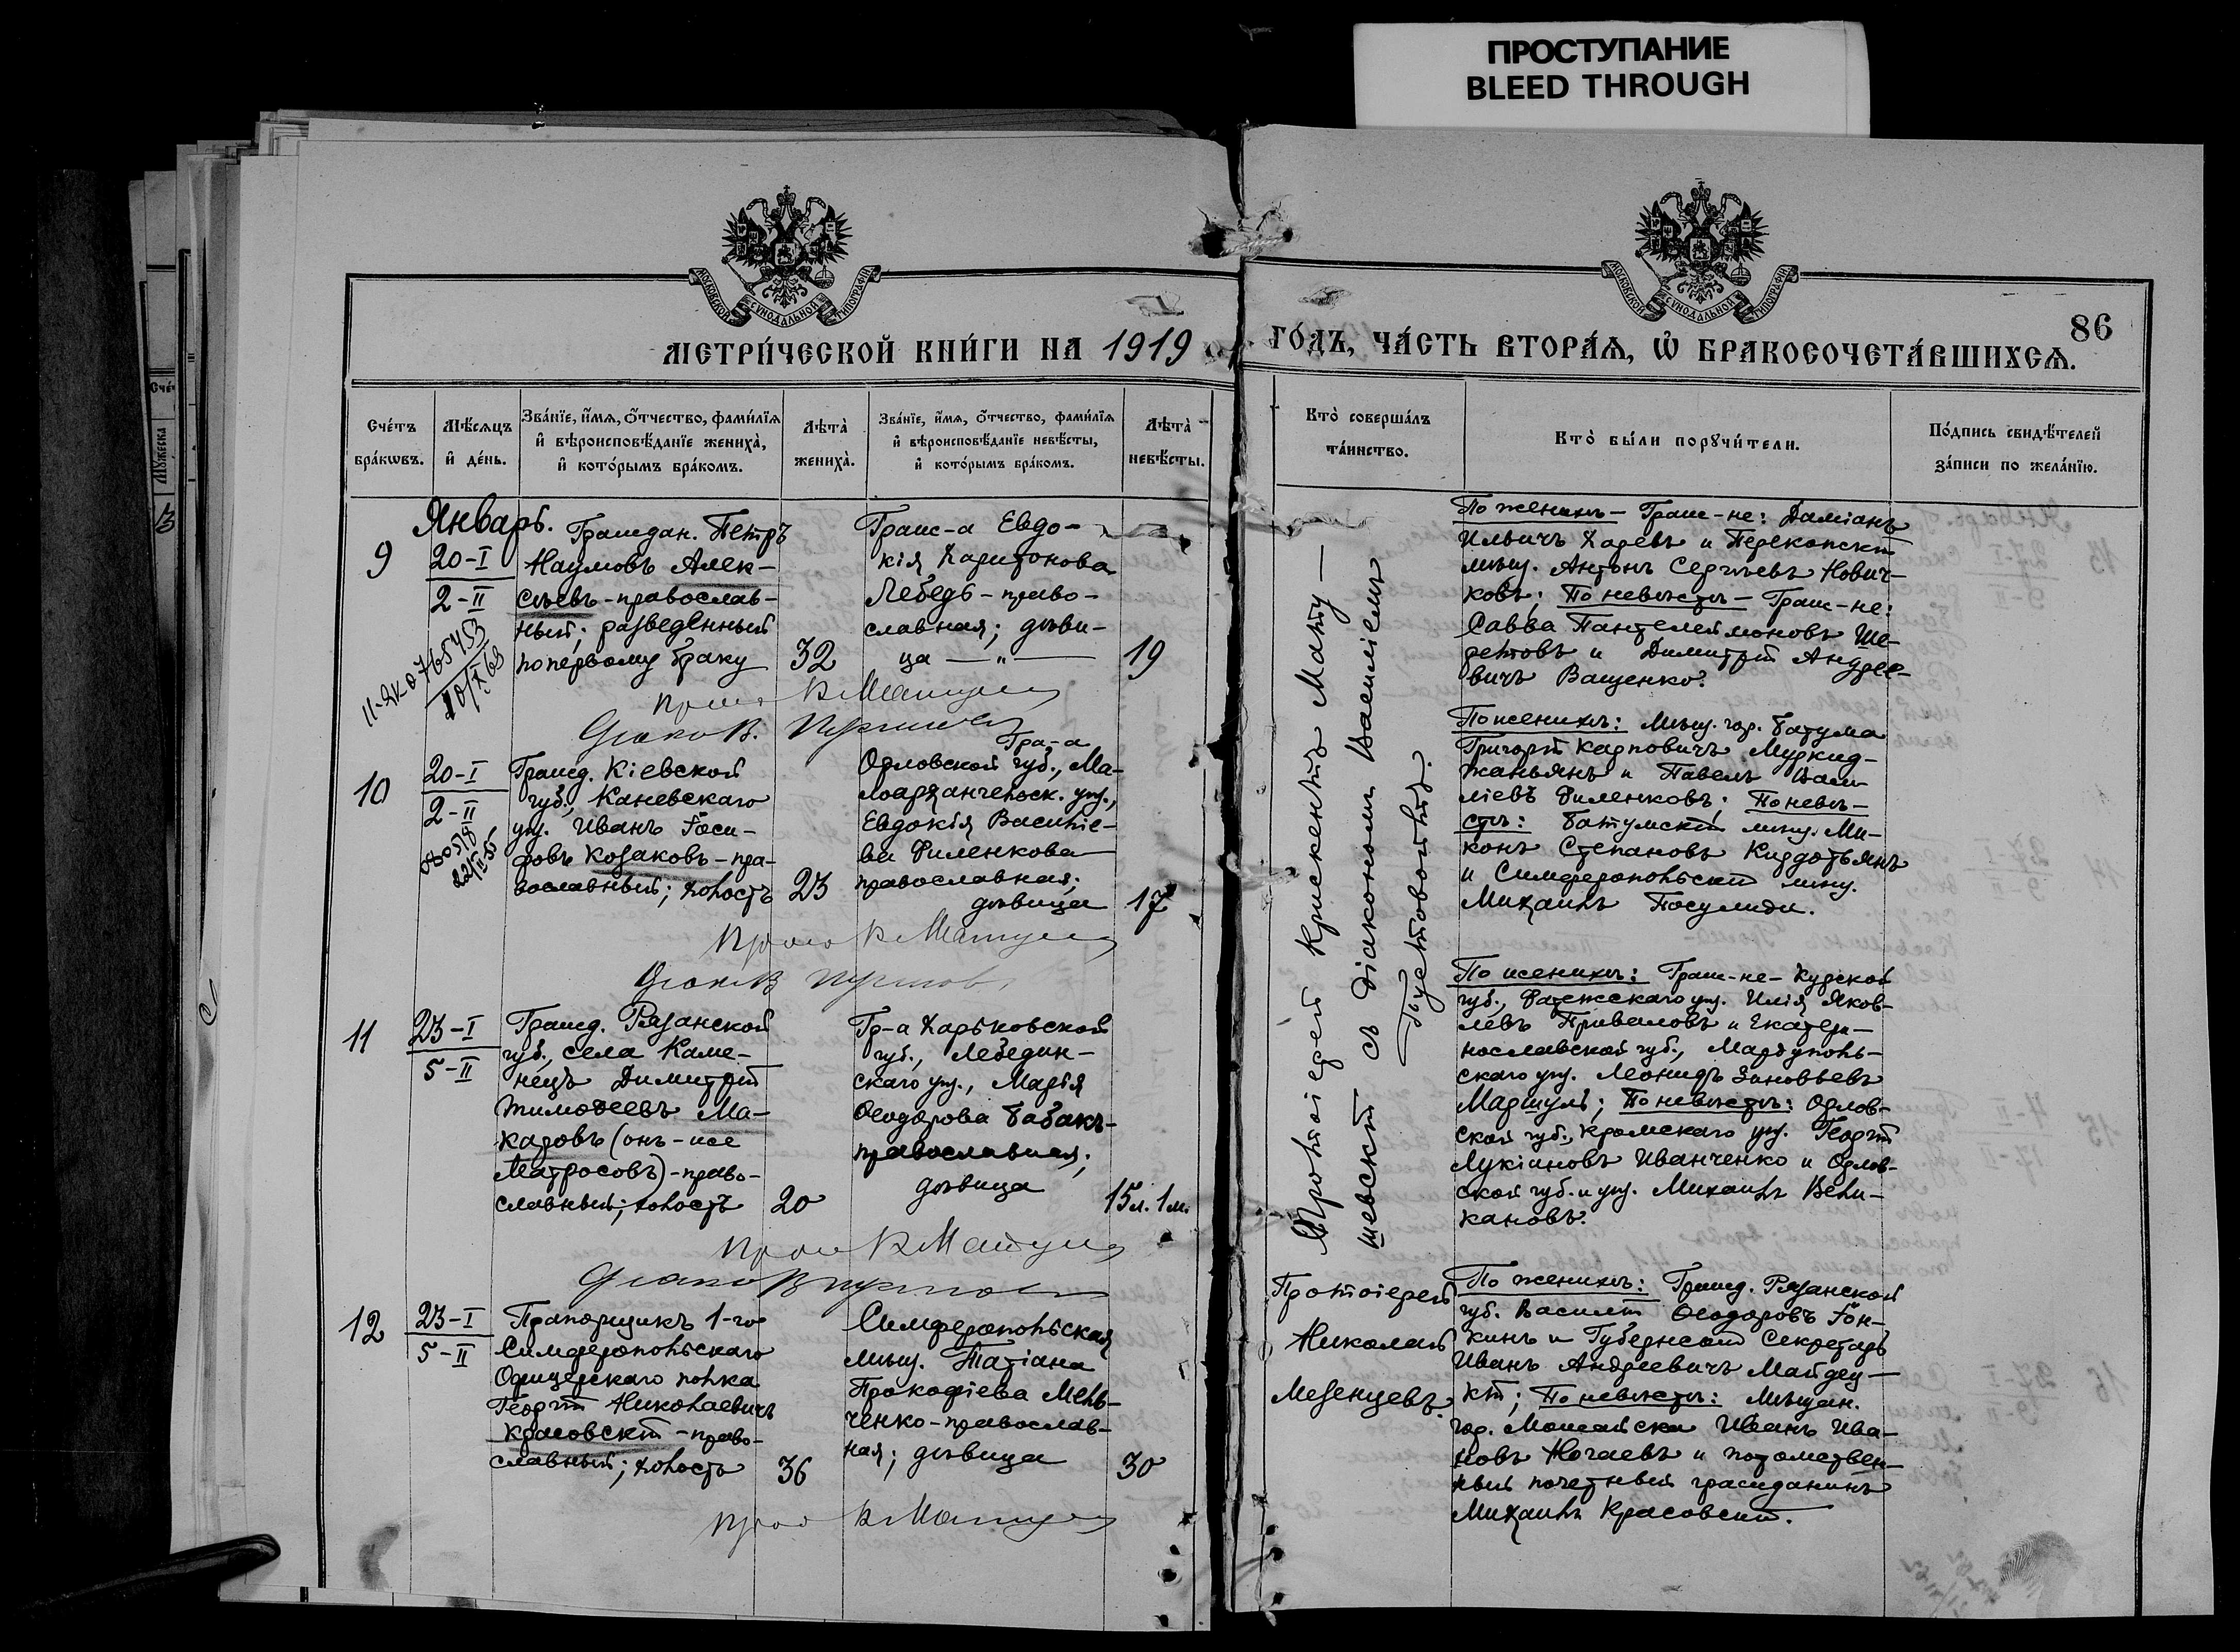 ПРОСТУПАНИЕ
BLEED THROUGH
МОСКОВСКОЙ СѴНОДАЛЬНОЙ ТИПОГРАФІИ
МОСКОВСКОЙ СѴНОДАЛЬНОЙ ТИПОГРАФІИ
86
МЕТРИ́ЧЕСКОЙ КНИ́ГИ НА 1919
ГО́ДЪ, ЧА́СТЬ ВТОРА́Ѧ, Ѡ БРАКОСОЧЕТА́ВШИХСѦ.
Сче́тъ
бра́кѡвъ.
Мѣ́сѧцъ
и де́нь.
Зва́нїе, и́мѧ, о́тчество, фами́лїѧ
и вѣроисповѣ́данїе жениха̀,
и кото́рымъ бра́комъ.
Лѣта̀
жениха̀.
Зва́нїе, и́мѧ, о́тчество, фами́лїѧ
и вѣроисповѣ́данїе невѣ́сты,
и кото́рымъ бра́комъ.
Лѣта̀
невѣ́сты.
Кто̀ соверша́лъ
та́инство.
Кто̀ бы́ли порꙋчи́тели.
По́дпись свидѣ́телей
за́писи по жела́нїю.
Январь.
9
20-I
2-II
Граждан. Петръ
Наумовъ Алек-
сѣевъ - православ-
ный; разведенный
по первому браку
32
Граж-а Евдо-
кія Харитонова
Лебедь - право-
славная; дѣви-
ца — „ —
19
По женихѣ - Граж-не: Даміанъ
Ильичъ Харевъ и Перекопскій
мѣщ. Антонъ Сергѣевъ Нович-
ковъ; По невѣстѣ - Граж-не:
Савва Пантелеймоновъ Ше-
ретовъ и Димитрій Андрее-
вичъ Ващенко.
10
20-I
2-II
Гражд. Кіевской
губ., Каневскаго
уѣз. Иванъ Іоси-
фовъ Козаковъ - пра-
вославный; холостъ
23
Гра-а
Орловской губ., Ма-
лоархангельск. уѣз.,
Евдокія Василіе-
ва Филенкова
православная;
дѣвица
17
По женихѣ: Мѣщ. гор. Батума
Григорій Карповичъ Муркид-
жаньянъ и Павелъ Васи-
ліевъ Филенковъ; По невѣ-
стѣ: Батумскій мѣщ. Ми-
конъ Степановъ
и Симферопольскій мѣщ.
Михаилъ
11
23-I
5-II
Гражд. Рязанской
губ., села Каме-
нецъ Димитрій
Тимоѳеевъ Ма-
каровъ (онъ-же
Матросовъ) - право-
славный; холостъ
20
Гр-а Харьковской
губ., Лебедин-
скаго уѣз., Марія
Ѳеодорова Бабакъ-
православная;
дѣвица
15 л. 1 м.
По женихѣ: Граж-не - Курской
губ., Фатежскаго уѣз. Илія Яков-
левъ Приваловъ и Екатери-
нославской губ., Маріуполь-
скаго уѣз. Леонидъ Зиновьевъ
Маршулъ; По невѣстѣ: Орлов-
ской губ., Кромскаго уѣз. Георгій
Лукіановъ Иванченко и Орлов-
ской губ. и уѣз. Михаилъ Вели-
кановъ.
Протоіерей Крискентъ Мату-
шевскій съ діакономъ Василіемъ
Пустовойтъ.
12
23-I
5-II
Прапорщикъ 1-го
Симферопольскаго
Офицерскаго полка
Георгій Николаевичъ
Красовскій - право-
славный; холостъ
36
Симферопольская
мѣщ. Татіана
Прокофіева Мель-
ченко - православ-
ная; дѣвица
30
Протоіерей
Николай
Мезенцевъ.
По женихѣ: Гражд. Рязанской
губ. Василій Ѳеодоровъ Іон-
кинъ и Губернскій Секретарь
Иванъ Андреевичъ
По невѣстѣ: Мѣщан.
гор. Можайска Иванъ Ива-
новъ Ногаевъ и потомствен-
ный почетный гражданинъ
Михаилъ Красовскій.